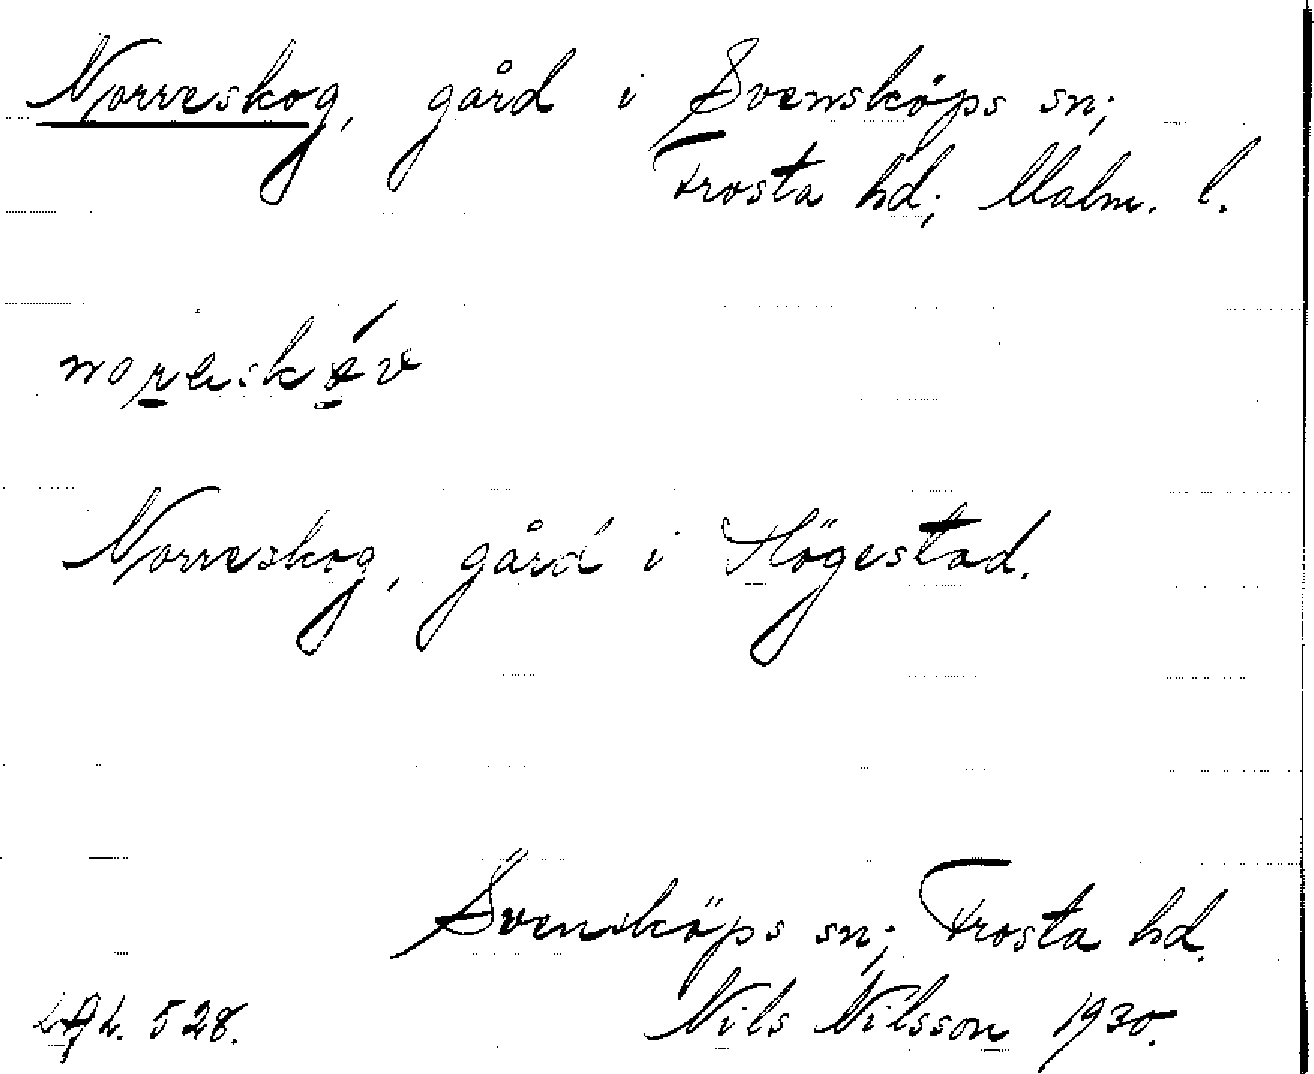 Norreskog, gård i Svensköps sn;
Frosta hd; Malm. l.
Norreskog, gård i Högestad.
Svensköps sn; Frosta hd.
528. Nils Nilsson 1930.